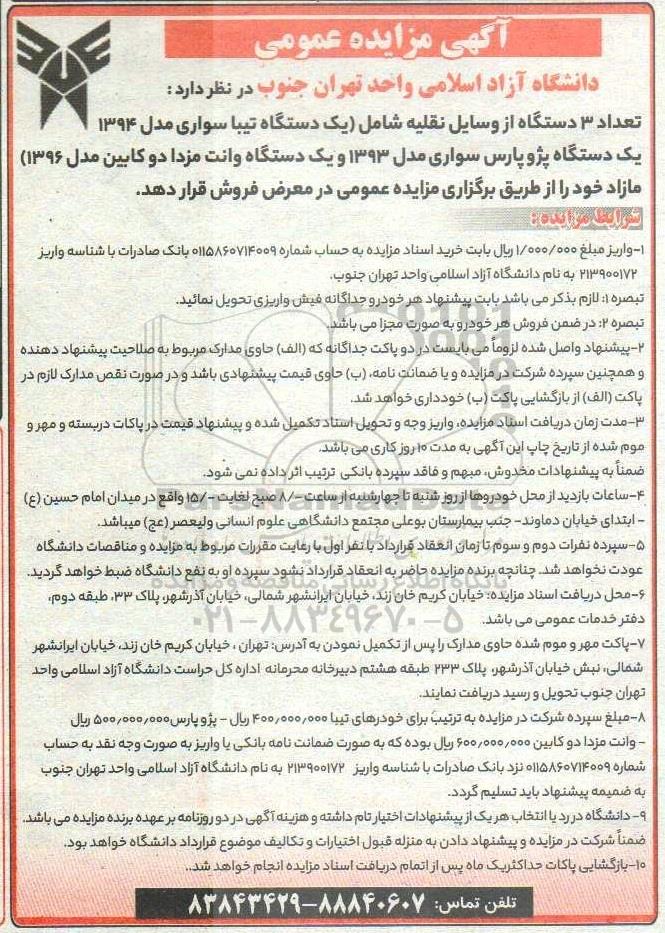 آگهی مزایده عمومی
دانشگاه آزاد اسلامی واحد تهران جنوب در نظر دارد :
تعداد ۳ دستگاه از وسایل نقلیه شامل (یک دستگاه تیبا سواری مدل ۱۳۹۴
یک دستگاه پژو پارس سواری مدل ۱۳۹۳ و یک دستگاه وانت مزدا دو کابین مدل ۱۳۹۶)
مازاد خود را از طریق برگزاری مزایده عمومی در معرض فروش قرار دهد.
شرایط مزایده :
۱-واریز مبلغ ۱/۰۰۰/۰۰۰ ریال بابت خرید اسناد مزایده به حساب شماره ۰۱۱۵۸۶۰۷۱۴۰۰۹ بانک صادرات با شناسه واریز
۲۱۳۹۰۰۱۷۲ به نام دانشگاه آزاد اسلامی واحد تهران جنوب.
تبصره ۱: لازم بذکر می باشد بابت پیشنهاد هر خودرو جداگانه فیش واریزی تحویل نمائید.
تبصره ۲: در ضمن فروش هر خودرو به صورت مجزا می باشد.
۲-پیشنهاد واصل شده لزوماً می بایست در دو پاکت جداگانه که (الف) حاوی مدارک مربوط به صلاحیت پیشنهاد دهنده
و همچنین سپرده شرکت در مزایده و یا ضمانت نامه، (ب) حاوی قیمت پیشنهادی باشد و در صورت نقص مدارک لازم در
پاکت (الف) از بازگشایی پاکت (ب) خودداری خواهد شد.
۳-مدت زمان دریافت اسناد مزایده، واریز وجه و تحویل اسناد تکمیل شده و پیشنهاد قیمت در پاکات دربسته و مهر و
موم شده از تاریخ چاپ این آگهی به مدت ۱۰ روز کاری می باشد.
ضمناً به پیشنهادات مخدوش، مبهم و فاقد سپرده بانکی ترتیب اثر داده نمی شود.
۴-ساعات بازدید از محل خودروها از روز شنبه تا چهارشنبه از ساعت ۸/۰ صبح لغایت ۱۵/۰ واقع در میدان امام حسین (ع)
- ابتدای خیابان دماوند- جنب بیمارستان بوعلی مجتمع دانشگاهی علوم انسانی ولیعصر (عج) میباشد.
۵-سپرده نفرات دوم و سوم تا زمان انعقاد قرارداد با نفر اول با رعایت مقررات مربوط به مزایده و مناقصات دانشگاه
عودت نخواهد شد. چنانچه برنده مزایده حاضر به انعقاد قرارداد نشود سپرده او به نفع دانشگاه ضبط خواهد گردید.
۶-محل دریافت اسناد مزایده: خیابان کریم خان زند، خیابان ایرانشهر شمالی، خیابان آذرشهر، پلاک ۳۳، طبقه دوم،
دفتر خدمات عمومی می باشد.
۷-پاکت مهر و موم شده حاوی مدارک را پس از تکمیل نمودن به آدرس: تهران ، خیابان کریم خان زند، خیابان ایرانشهر
شمالی، نبش خیابان آذرشهر، پلاک ۲۳۳ طبقه هشتم دبیرخانه محرمانه اداره کل حراست دانشگاه آزاد اسلامی واحد
تهران جنوب تحویل و رسید دریافت نمایند.
۸-مبلغ سپرده شرکت در مزایده به ترتیب برای خودرهای تیبا ۴۰۰,۰۰۰,۰۰۰ ریال - پژو پارس۵۰۰,۰۰۰,۰۰۰ ریال
- وانت مزدا دو کابین ۶۰۰,۰۰۰,۰۰۰ ریال بوده که به صورت ضمانت نامه بانکی یا واریز به صورت وجه نقد به حساب
شماره ۰۱۱۵۸۶۰۷۱۴۰۰۹ نزد بانک صادرات با شناسه واریز ۲۱۳۹۰۰۱۷۲ به نام دانشگاه آزاد اسلامی واحد تهران جنوب
به ضمیمه پیشنهاد باید تسلیم گردد.
۹- دانشگاه در رد یا انتخاب هر یک از پیشنهادات اختیار تام داشته و هزینه آگهی در دو روزنامه بر عهده برنده مزایده می باشد.
ضمناً شرکت در مزایده و پیشنهاد دادن به منزله قبول اختیارات و تکالیف موضوع قرارداد دانشگاه خواهد بود.
۱۰-بازگشایی پاکات حداکثر یک ماه پس از اتمام دریافت اسناد مزایده انجام خواهد شد..
تلفن تماس: ۸۸۸۴۰۶۰۷-۸۳۸۴۳۴۲۹
ParsNamadData
پایگاه اطلاع رسانی مناقصه و مزایده
۰۲۱-۸۸۳۴۹۶۷۰-۵